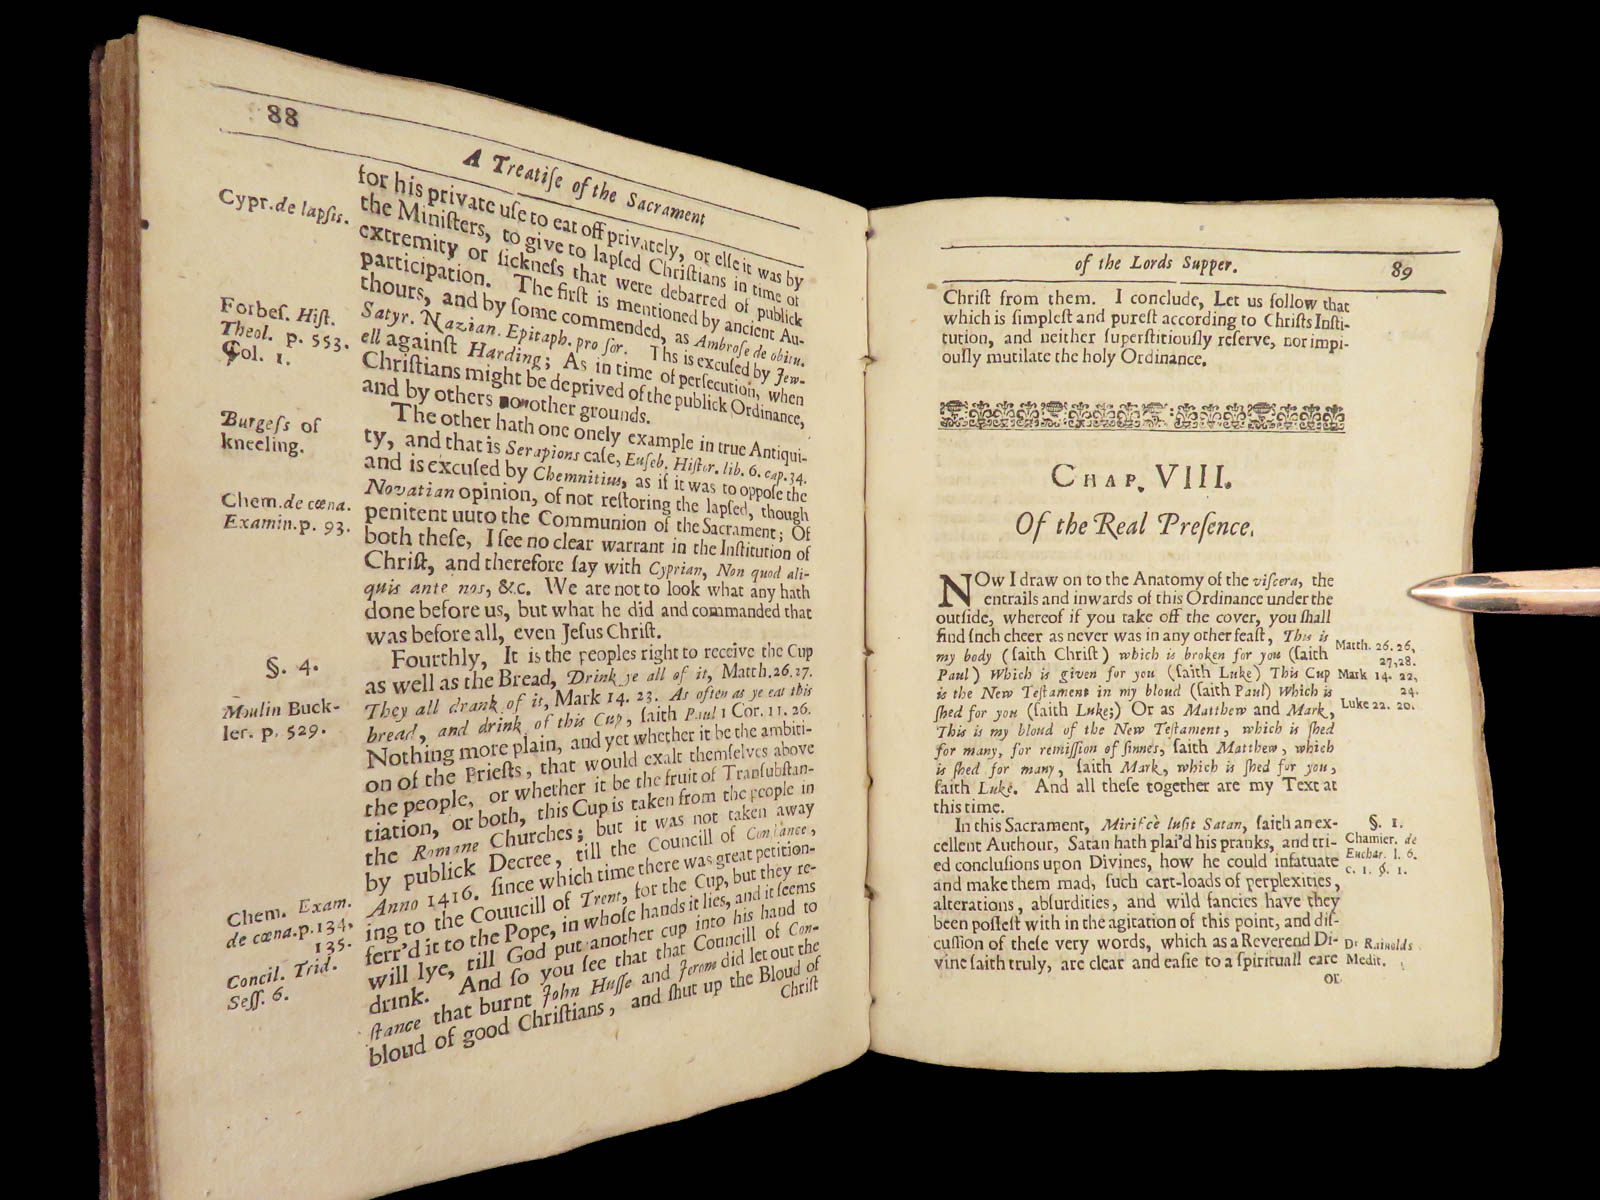 88
A Treatiſe of the Sacrament
for his private uſe to eat off privately, or elſe it was by
the Miniſters, to give to lapſed Chriſtians in time of
extremity or ſickneſs that were debarred of publick
participation. The firſt is mentioned by ancient Au-
thours, and by ſome commended, as Ambroſe de obitu.
Satyr. Nazian. Epitaph. pro ſor. Ths is excuſed by Jew-
ell against Harding; As in time of perſecution, when
Chriſtians might be deprived of the publick Ordinance,
and by others other grounds.
The other hath one onely example in true Antiqui-
ty, and that is Serapions caſe, Euſeb. Hiſtor. lib. 6. cap. 34.
and is excuſed by Chemnitius, as if it was to oppoſe the
Novatian opinion, of not reſtoring the lapſed, though
penitent uuto the Communion of the Sacrament; Of
both theſe, I ſee no clear warrant in the Inſtitution of
Chriſt, and therefore ſay with Cyprian, Non quod ali-
quis ante nos, &c. We are not to look what any hath
done before us, but what he did and commanded that
was before all, even Jeſus Chriſt.
Fourthly, It is the peoples right to receive the Cup
as well as the Bread, Drink ye all of it, Matth. 26. 27.
They all drank of it, Mark 14. 23. As often as ye eat this
bread, and drink of this Cup, ſaith Paul 1 Cor. 11. 26.
Nothing more plain, and yet whether it be the ambiti-
on of the Prieſts, that would exalt themſelves above
the people, or whether it be the fruit of Tranſubſtan-
tiation, or both, this Cup is taken from the people in
the Romane Churches; but it was not taken away
by publick Decree, till the Councill of Conſtance,
Anno 1416. ſince which time there was great petition-
ing to the Couucill of Trent, for the Cup, but they re-
ferr'd it to the Pope, in whoſe hands it lies, and it ſeems
will lye, till God put another cup into his hand to
drink. And ſo you ſee that that Councill of Con-
ſtance that burnt John Huſſe and Jerom did let out the
bloud of good Chriſtians, and ſhut up the Bloud of
Chriſt
Cypr. de lapſis.
Forbeſ. Hiſt.
Theol. p. 553.
Col. 1.
Burgeſs of
kneeling.
Chem. de cœna.
Examin. p. 93.
§. 4.
Moulin Buck-
ler. p. 529.
Chem. Exam.
de cœna. p. 134,
135.
Concil. Trid.
Seſſ. 6.
of the Lords Supper.
89
Chriſt from them. I conclude, Let us follow that
which is ſimpleſt and pureſt according to Chriſts Inſti-
tution, and neither ſuperſtitiouſly reſerve, nor impi-
ouſly mutilate the holy Ordinance.
CHAP. VIII.
Of the Real Preſence.
NOw I draw on to the Anatomy of the viſcera, the
entrails and inwards of this Ordinance under the
outſide, whereof if you take off the cover, you ſhall
find ſnch cheer as never was in any other feaſt, This is
my body (ſaith Chriſt) which is broken for you (ſaith
Paul) Which is given for you (ſaith Luke) This Cup
is the New Teſtament in my bloud (ſaith Paul) Which is
ſhed for you (ſaith Luke;) Or as Matthew and Mark,
This is my bloud of the New Teſtament, which is ſhed
for many, for remiſſion of ſinnes, ſaith Matthew, which
is ſhed for many, ſaith Mark, which is ſhed for you,
ſaith Luke. And all theſe together are my Text at
this time.
In this Sacrament, Mirificè luſit Satan, ſaith an ex-
cellent Authour, Satan hath plai'd his pranks, and tri-
ed concluſions upon Divines, how he could infatuate
and make them mad, ſuch cart-loads of perplexities,
alterations, abſurdities, and wild fancies have they
been poſſeſt with in the agitation of this point, and diſ-
cuſſion of theſe very words, which as a Reverend Di-
vine ſaith truly, are clear and eaſie to a ſpirituall eare
or
Matth. 26. 26,
27, 28.
Mark 14. 22,
24.
Luke 22. 20.
§. 1.
Chamier. de
Euchar. l. 6.
c. 1. §. 1.
Dr Rainolds
Medit.